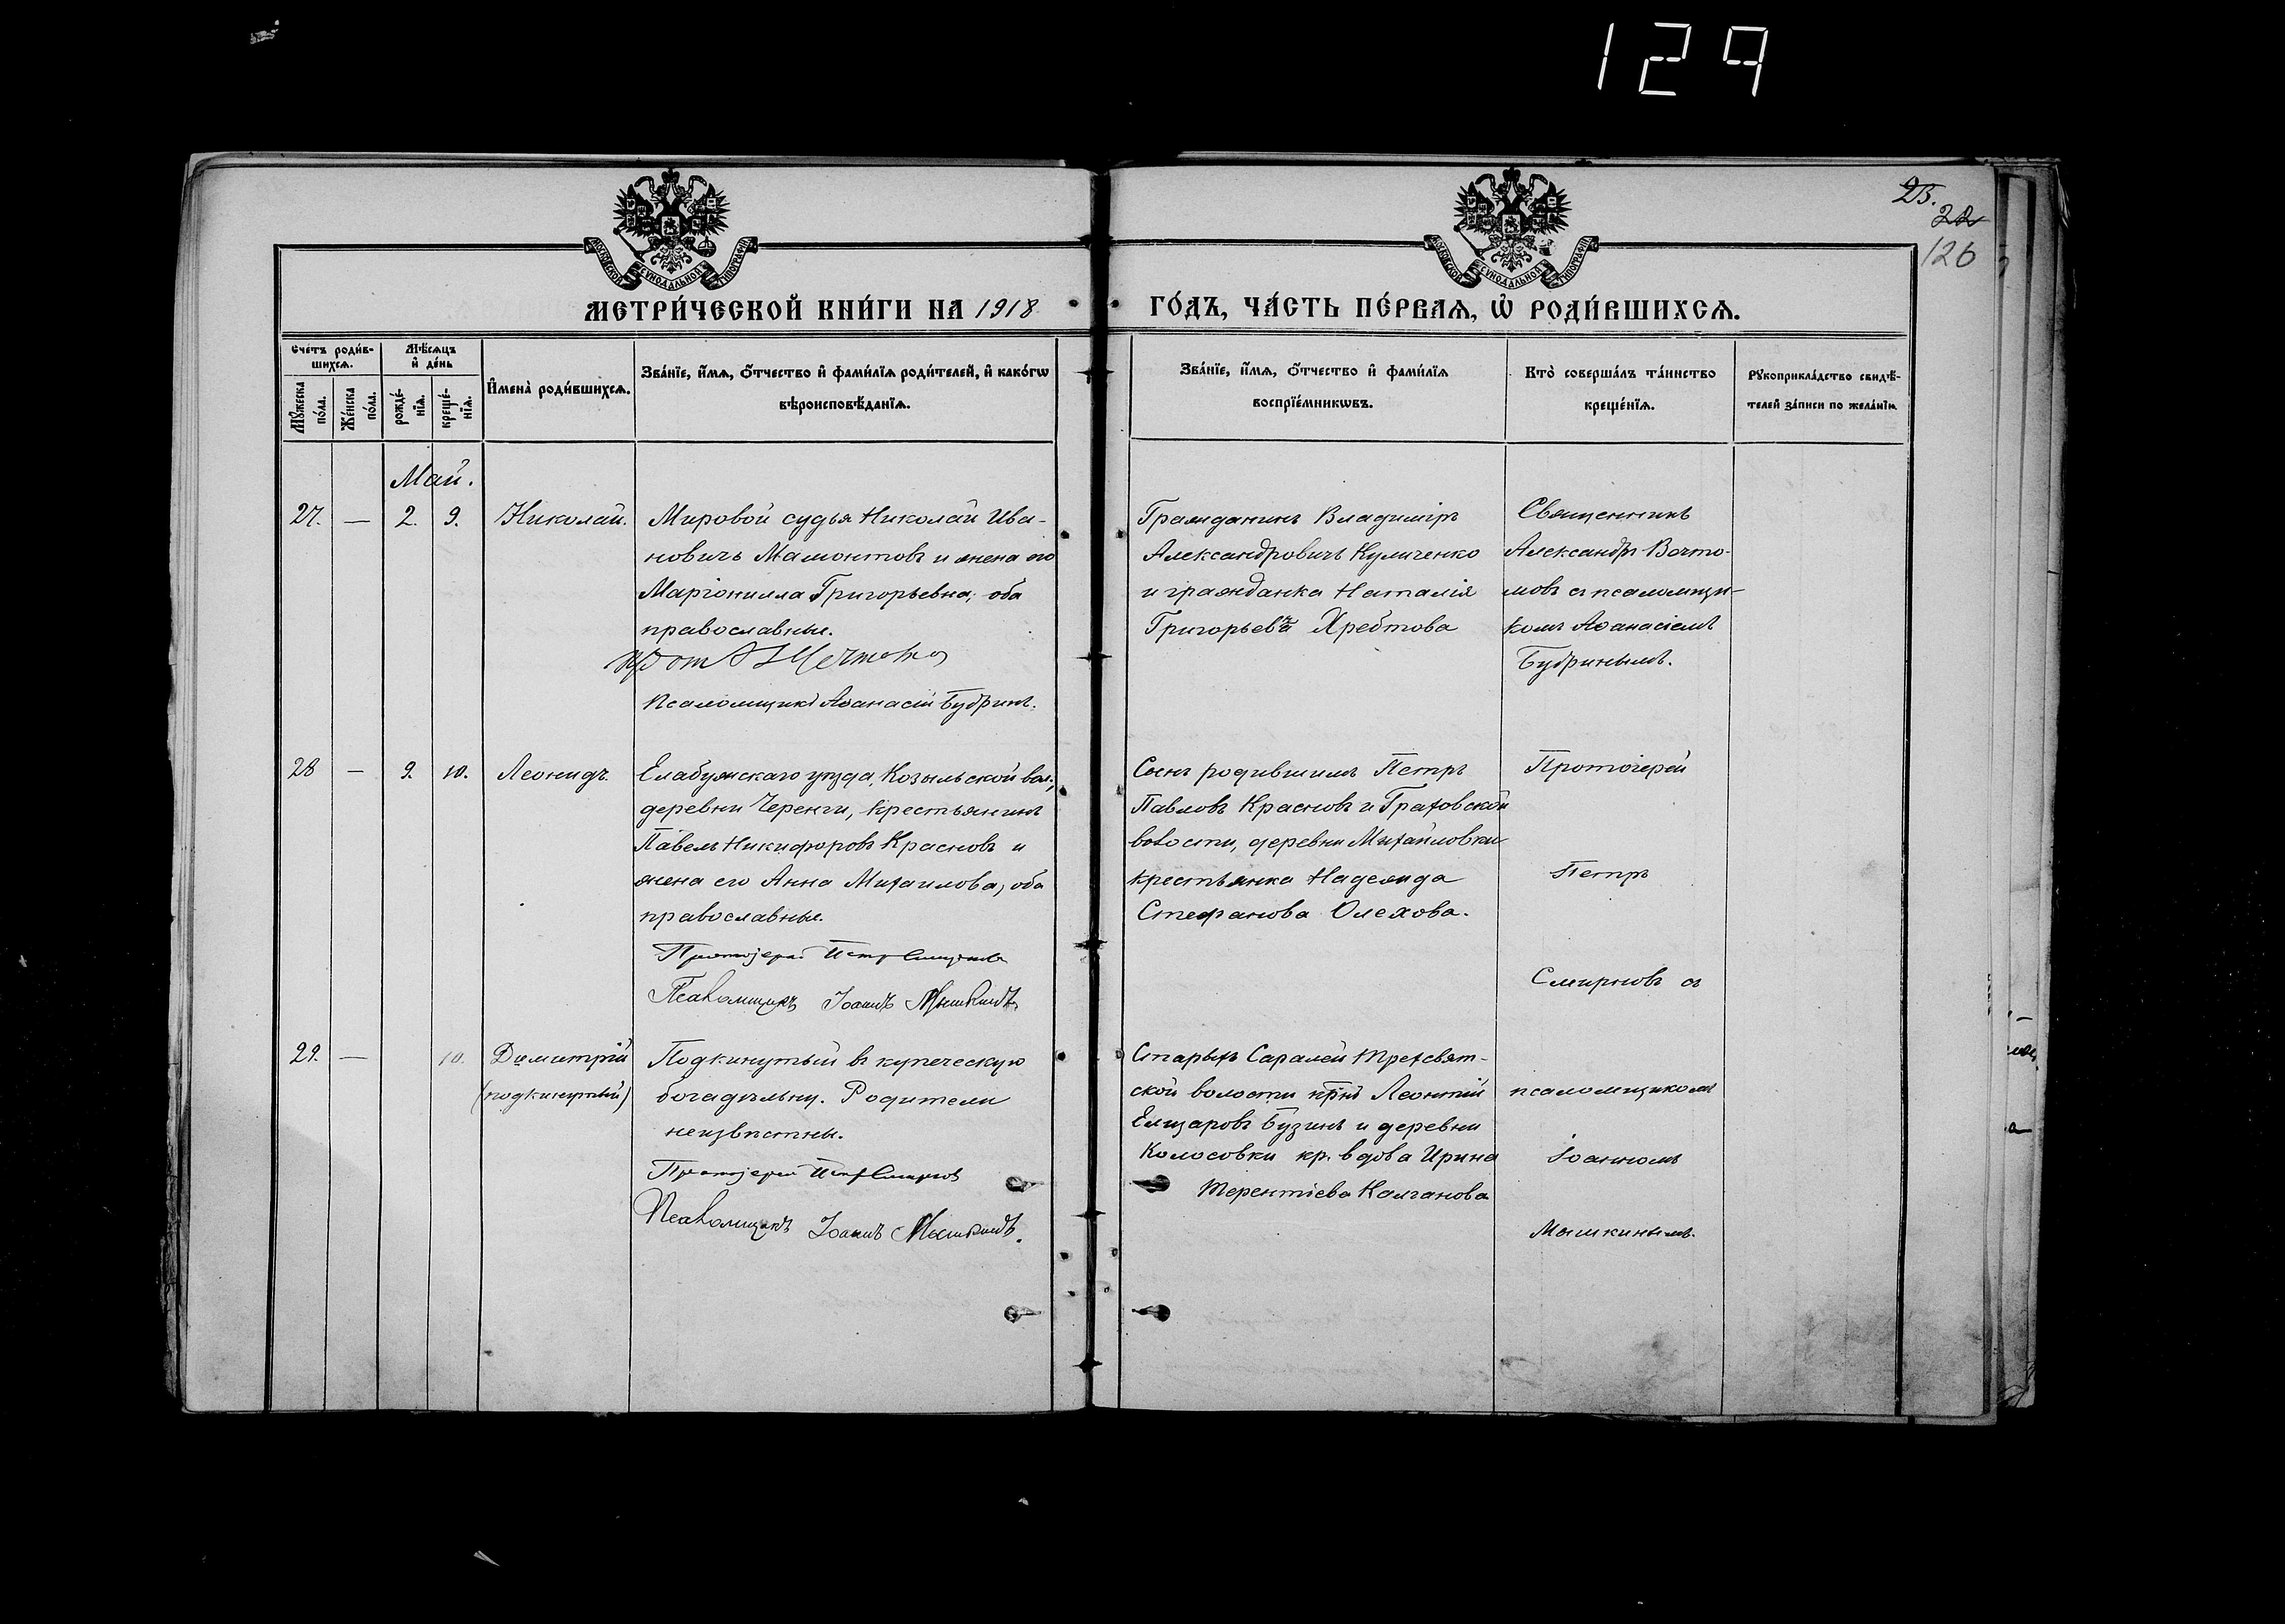 129
23.
22
126
МОСКОВСКОЙ СУНОДАЛЬНОЙ ТИПОГРАФІИ
МОСКОВСКОЙ СУНОДАЛЬНОЙ ТИПОГРАФІИ
МЕТРИ́ЧЕСКОЙ КНИ́ГИ НА 1918
ГО́ДЪ, ЧА́СТЬ ПЕ́РВАѦ, Ѽ РОДИ́ВШИХСѦ.
Сче́тъ роди́в-
шихсѧ.
Мѣ́сѧцъ
и҆ де́нь
Мꙋ́жеска
по́ла.
Же́нска
по́ла.
рожде́-
нїѧ.
креще́-
нїѧ.
И҆мена̀ роди́вшихсѧ.
Зва́нїе, и҆́мѧ, ѻ҆́тчество и҆ фами́лїѧ роди́телей, и҆ како́гѡ
вѣроисповѣ́данїѧ.
Зва́нїе, и҆́мѧ, ѻ҆́тчество и҆ фами́лїѧ
воспрїе́мникѡвъ.
Кто̀ соверша́лъ та́инство
креще́нїѧ.
Рꙋкоприкла́дство свидѣ́-
телей за́писи по жела́нїю.
Май.
27. — 2. 9. Николай.
Мировой судья Николай Ива-
новичъ Мамонтовъ и жена его
Маріонилла Григорьевна, оба
православные.
Псаломщикъ Аѳанасій Бубринъ.
Гражданинъ Владиміръ
Александровичъ Куличенко
и гражданка Наталія
Григорьевна Хребтова
Священникъ
Александръ Вечто-
мовъ съ псаломщи-
комъ Аѳанасіемъ
Бубринымъ.
28 — 9. 10. Леонидъ.
Елабужскаго уѣзда, Козыльской вол.,
деревни Черенги, крестьянинъ
Павелъ Никифоровъ Красновъ и
жена его Анна Михаилова, оба
православные.
Протоіерей Петръ Смирновъ
Псаломщикъ Іоаннъ Мышкинъ.
Сынъ родившимъ Петръ
Павловъ Красновъ и Граховской
волости, деревни Михайловки
крестьянка Надежда
Стефанова Олехова.
Протоіерей
Петръ
Смирновъ съ
29. — 10. Димитрій
(подкинутый)
Подкинутый въ купеческую
богадѣльну. Родители
неизвѣстны.
Протоіерей Петръ Смирновъ
Псаломщикъ Іоаннъ Мышкинъ.
Старыхъ Саралей Трехсвят-
ской волости кр-нъ Леонтій
Елизаровъ Бузинъ и деревни
Колосовки кр. вдова Ирина
Терентіева Колганова
псаломщикомъ
Іоанномъ
Мышкинымъ.